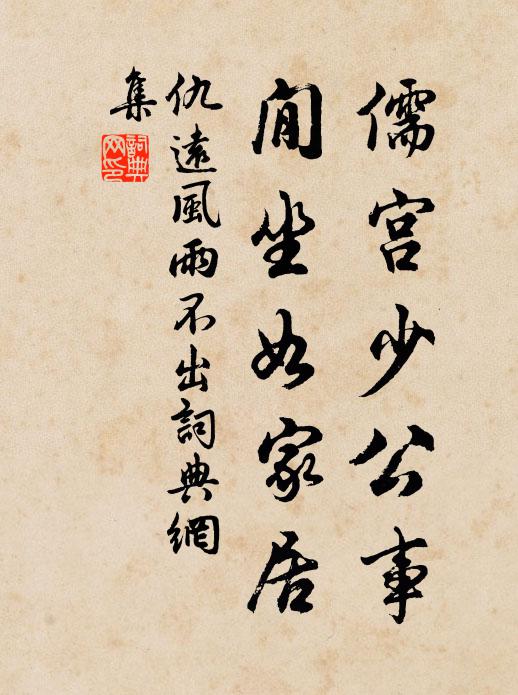 儒宫少公事
閒坐如家居
仇遠風雨不出詞典網
集
詞典
网印